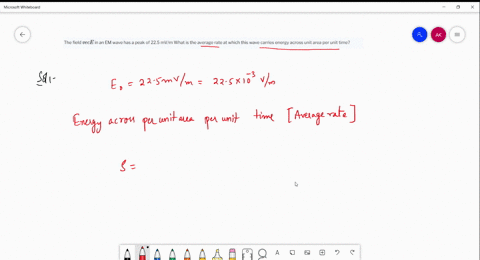 Microsoft Whiteboard
AK
The field vecE in an EM wave has a peak of 22.5 mV/m What is the average rate at which this wave carries energy across unit area per unit time?
Sol-
E₀ = 22.5 mV/m = 22.5 × 10⁻³ V/m
Energy across per unit area per unit time [Average rate]
S =